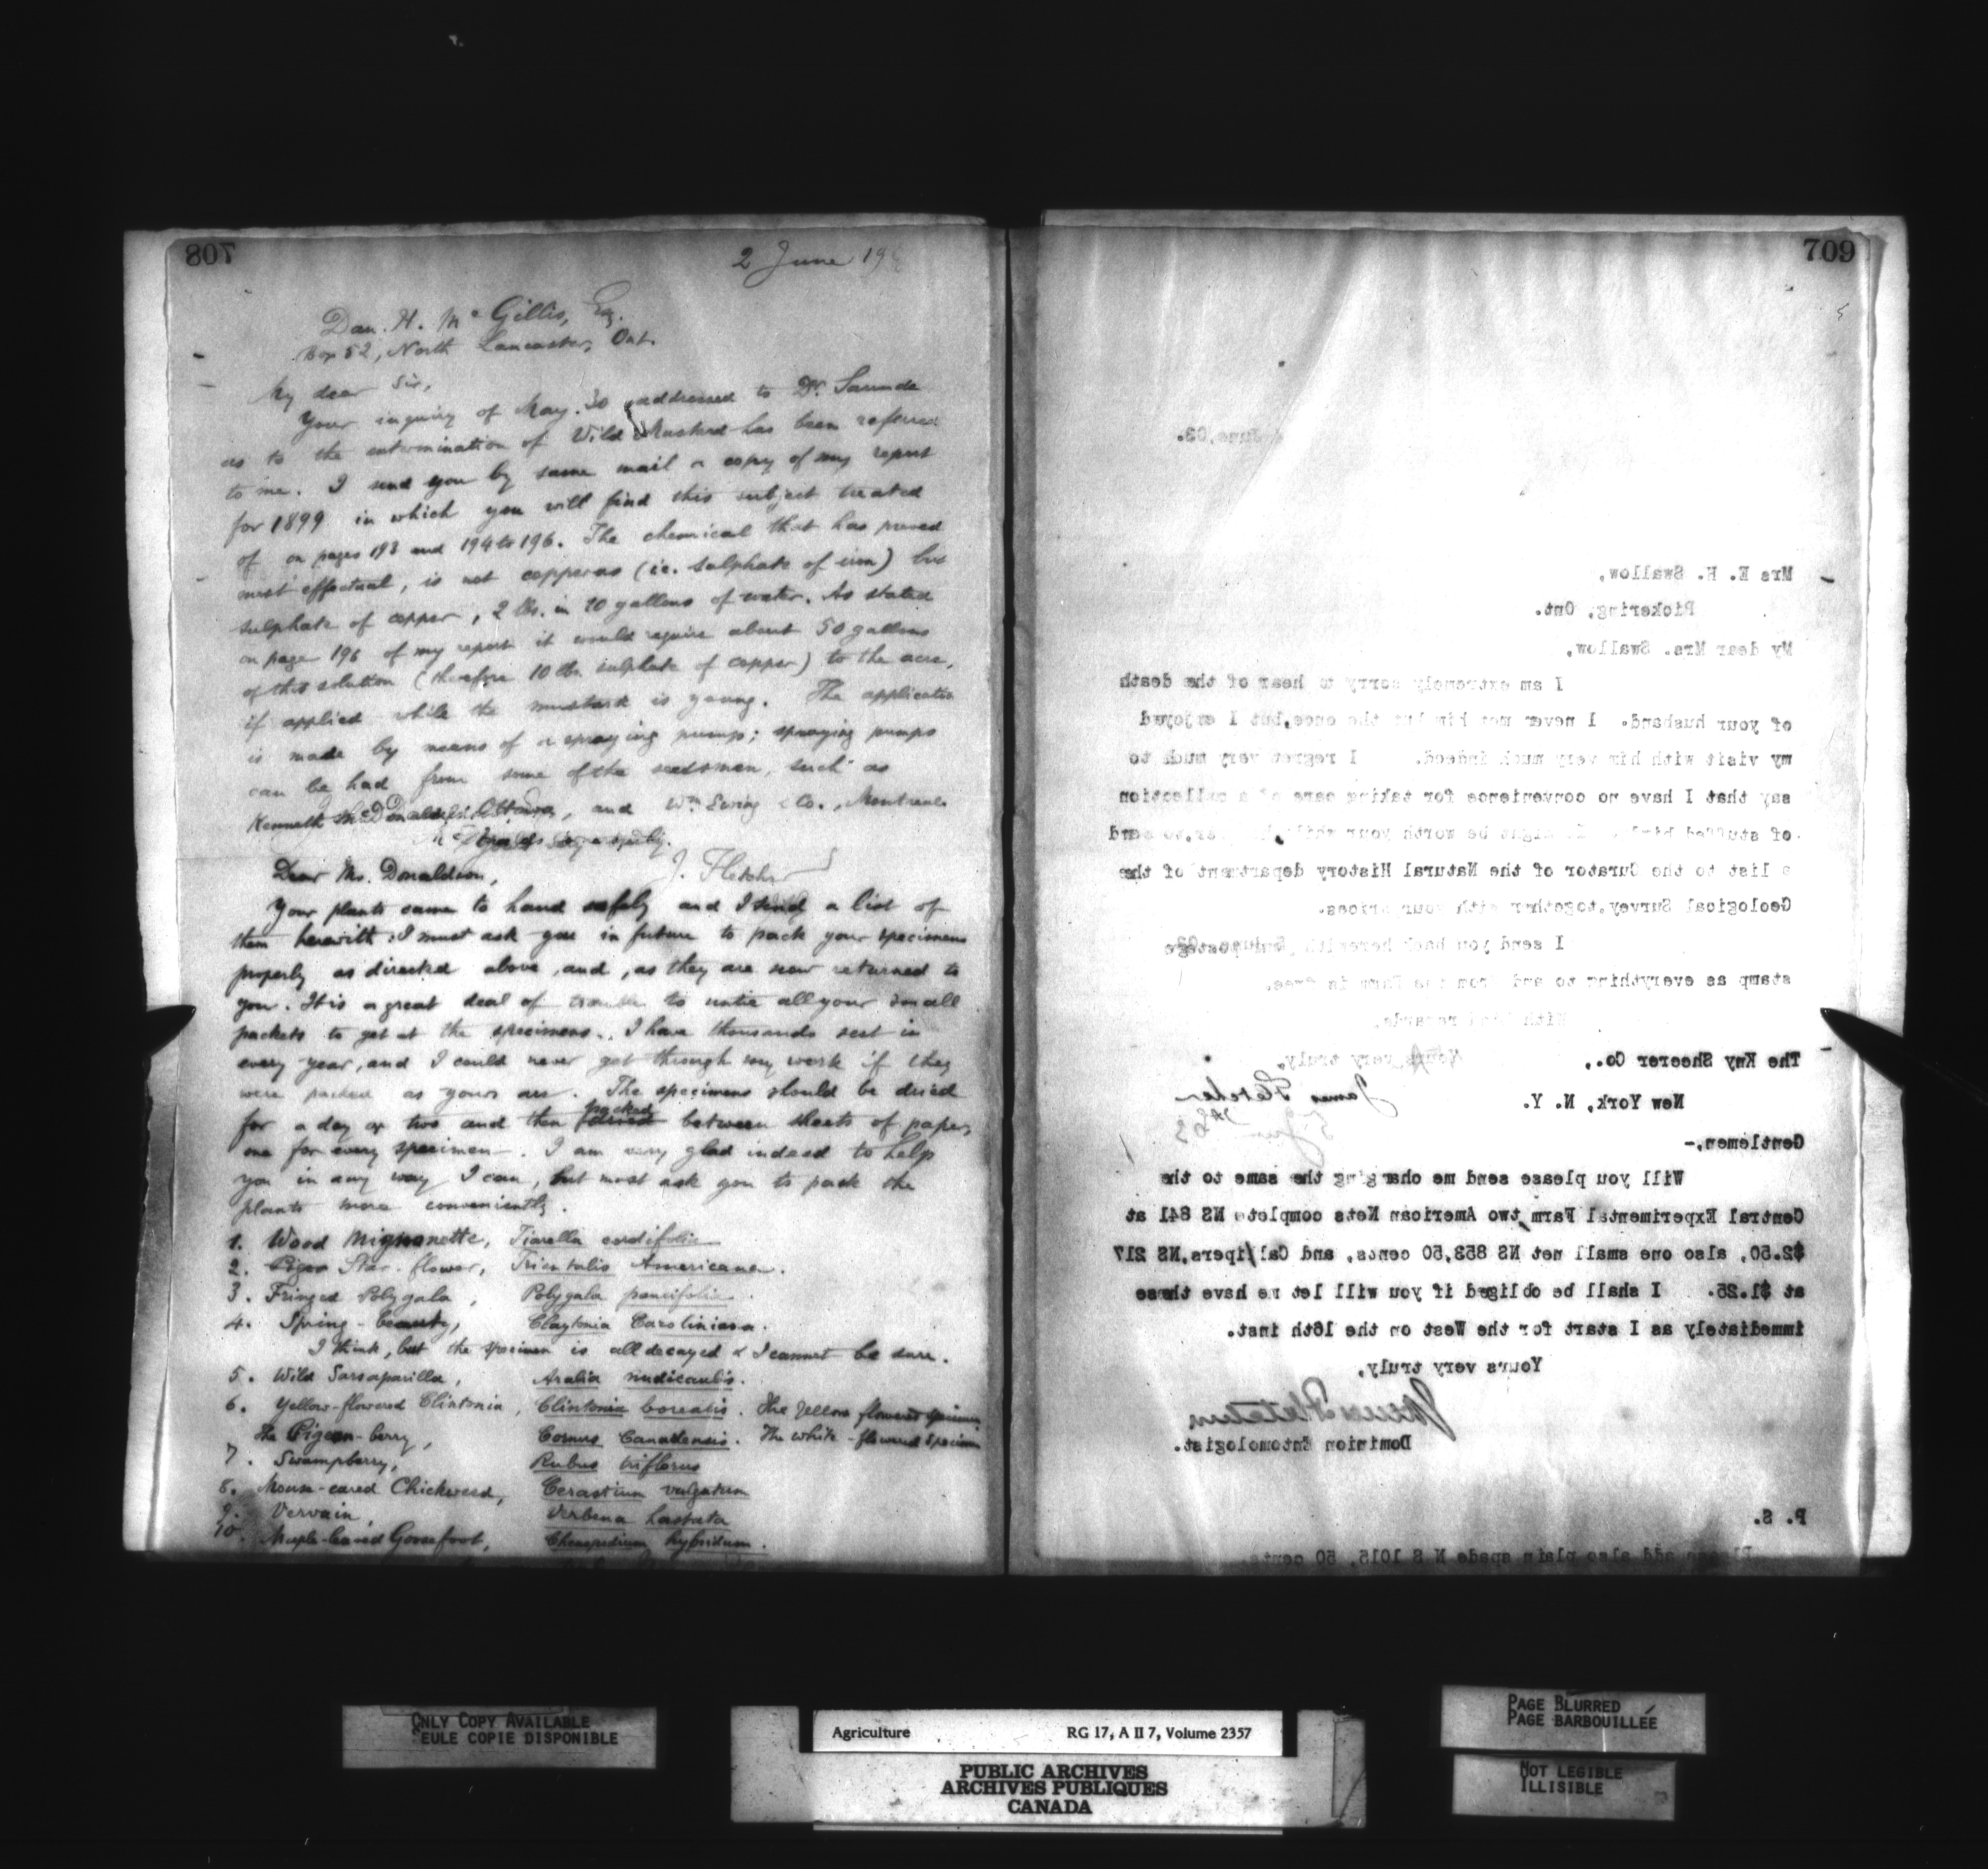 708
2 June 19
Dan. H. Mc Gillis, Esq.
Box 52, North Lancaster, Ont.
My dear Sir,
Your inquiry of May 30 addressed to Dr. Saunders
as to the extermination of Wild Mustard has been referred
to me. I send you by same mail a copy of my report
for 1899 in which you will find this subject treated
of on pages 193 and 194 to 196. The chemical that has proved
most effectual, is not copperas (i.e. sulphate of iron) but
sulphate of copper, 2 lbs. in 10 gallons of water. As stated
on page 196 of my report it would require about 50 gallons
of this solution (therefore 10 lbs. sulphate of copper) to the acre,
if applied while the mustard is young. The application
is made by means of a spraying pump; spraying pumps
can be had from some of the seedsmen, such as
Kenneth McDonald, Ottawa, and Wm Ewing & Co., Montreal.
J. Fletcher
Dear Mr. Donaldson,
Your plants came to hand safely and I send a list of
them herewith. I must ask you in future to pack your specimens
properly as directed above, and, as they are now returned to
you. It is a great deal of trouble to untie all your small
packets to get at the specimens. I have thousands sent in
every year, and I could never get through my work if they
were packed as yours are. The specimens should be dried
for a day or two and then packed between sheets of paper,
one for every specimen. I am very glad indeed to help
you in any way I can, but must ask you to pack the
plants more conveniently.
1. Wood Mignonette, Tiarella cordifolia
2. Star-flower, Trientalis Americana.
3. Fringed Polygala, Polygala paucifolia.
4. Spring-beauty, Claytonia Caroliniana.
I think, but the specimen is all decayed & I cannot be sure.
5. Wild Sarsaparilla, Aralia nudicaulis.
6. Yellow-flowered Clintonia, Clintonia borealis. The Yellow flowered specimen
The Pigeon-berry, Cornus Canadensis. The white-flowered specimen
7. Swampberry, Rubus triflorus
8. Mouse-eared Chickweed, Cerastium vulgatum
9. Vervain, Verbena hastata
10. Maple-leaved Goosefoot, Chenopodium hybridum.
709
June, 03.
Mrs E. H. Swallow,
Pickering, Ont.
My dear Mrs. Swallow,
I am extremely sorry to hear of the death
of your husband. I never met him but the once, but I enjoyed
my visit with him very much indeed. I regret very much to
say that I have no convenience for taking care of a collection
of stuffed birds. It might be worth your while, however, to send
a list to the Curator of the Natural History department of the
Geological Survey, together with your prices.
I send you back herewith your postage
stamp as everything to and from the Farm is free.
With kind regards,
Yours very truly,
James Fletcher
The Kny Sheerer Co.,
New York, N. Y.
Gentlemen,-
Will you please send me charging the same to the
Central Experimental Farm two American Nets complete NS 841 at
$2.50, also one small net NS 853,50 cents, and Calipers, NS 217
at $1.25. I shall be obliged if you will let me have these
immediately as I start for the West on the 16th inst.
Yours very truly,
James Fletcher
Dominion Entomologist.
P. S.
Please add also plain spade N S 1015, 50 cents.
ONLY COPY AVAILABLE
SEULE COPIE DISPONIBLE
Agriculture RG 17, A II 7, Volume 2357
PUBLIC ARCHIVES
ARCHIVES PUBLIQUES
CANADA
PAGE BLURRED
PAGE BARBOUILLÉE
NOT LEGIBLE
ILLISIBLE